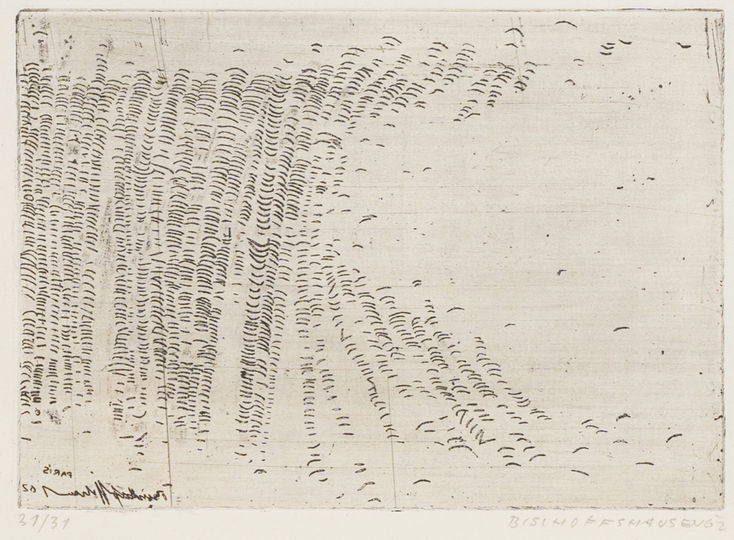 PARIS
62
31/31
BISCHOFFSHAUSEN 62